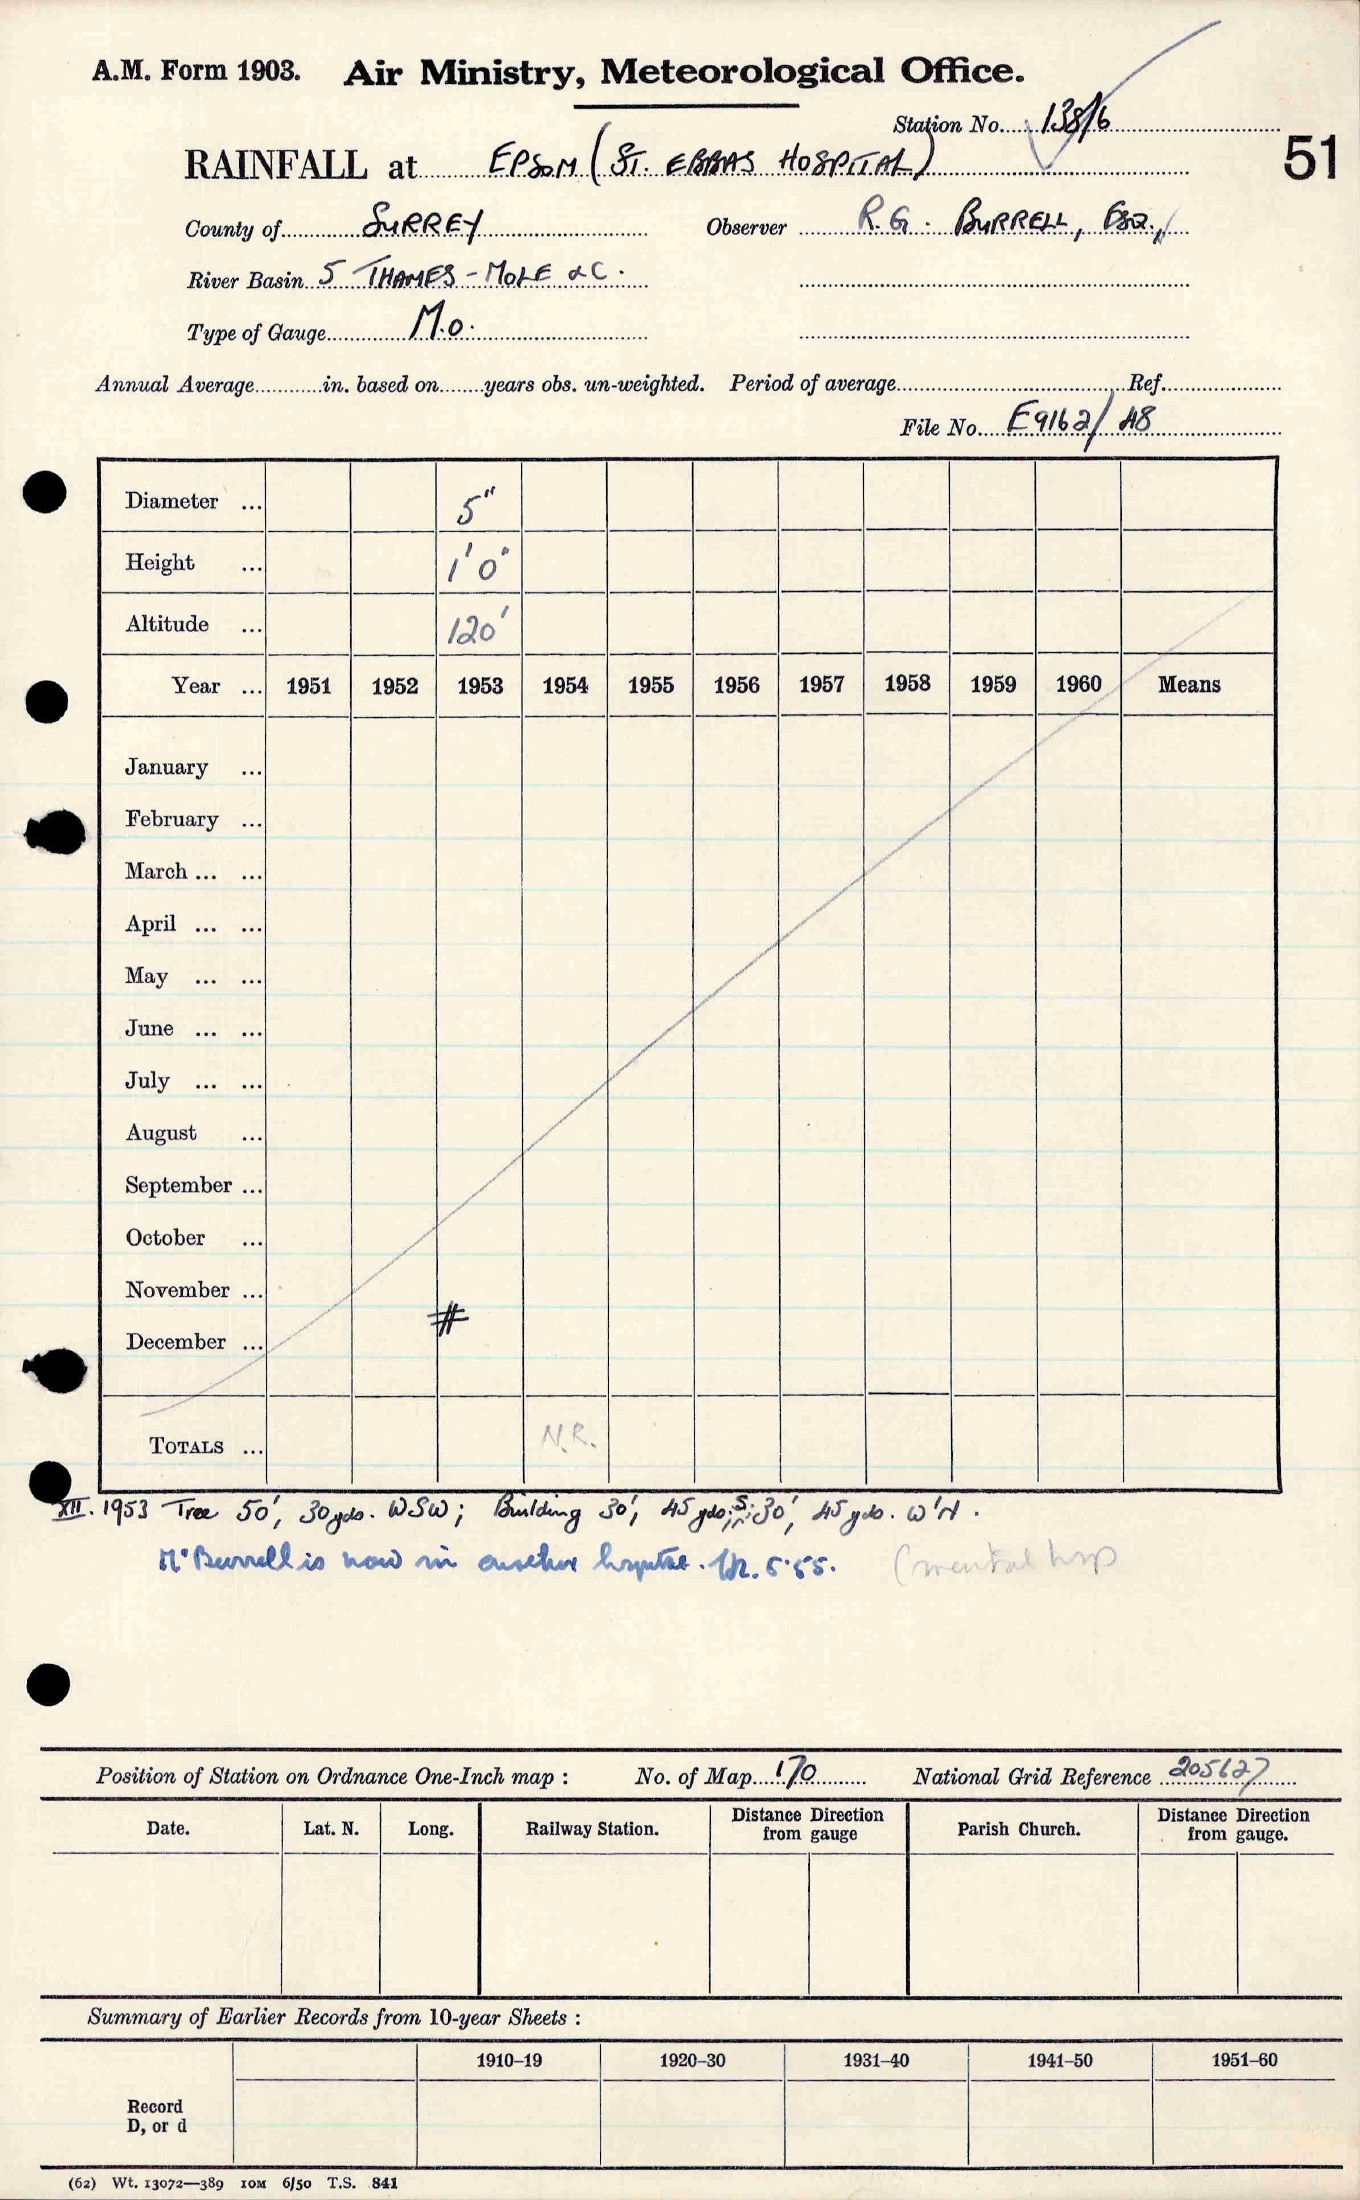 A.M. Form 1903. Air Ministry, Meteorological Office.
Station No. 138/6
51
RAINFALL at EPSOM (ST. EBBAS HOSPITAL)
County of SURREY Observer R.G. BURRELL, ESQ.,
River Basin 5 THAMES - MOLE &C.
Type of Gauge M.O.
Annual Average in. based on years obs. un-weighted. Period of average Ref.
File No. E9162/48
Diameter ... 5"
Height ... 1' 0"
Altitude ... 120'
Year ... 1951 1952 1953 1954 1955 1956 1957 1958 1959 1960 Means
January ...
February ...
March ... ...
April ... ...
May ... ...
June ... ...
July ... ...
August ...
September ...
October ...
November ...
#
December ...
TOTALS ... N.R.
XII. 1953 Tree 50', 30yds. WSW; Building 30', 45yds; S; 30', 45yds. W'N.
Mr Burrell is now in another hospital. 5.55. (mental hosp
Position of Station on Ordnance One-Inch map : No. of Map 170 National Grid Reference 205627
Date. Lat. N. Long. Railway Station. Distance Direction from gauge Parish Church. Distance Direction from gauge.
Summary of Earlier Records from 10-year Sheets :
1910–19 1920–30 1931–40 1941–50 1951–60
Record
D, or d
(62) Wt. 13072—389 10M 6/50 T.S. 841